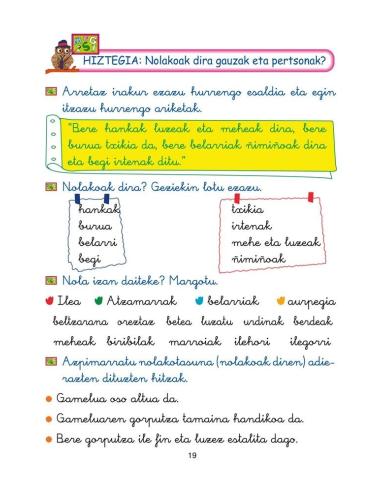 HIZTEGIA: Nolakoak dira gauzak eta pertsonak?
Arretaz irakur ezazu hurrengo esaldia eta egin
itzazu hurrengo ariketak.
"Bere hankak luzeak eta meheak dira, bere
burua txikia da, bere belarriak ñimiñoak dira
eta begi irtenak ditu."
Nolakoak dira? Geziekin lotu ezazu.
hankak txikia
burua irtenak
belarri mehe eta luzeak
begi ñimiñoak
Nola izan daiteke? Margotu.
Ilea Atzamarrak belarriak aurpegia
beltzarana oreztaz betea luzatu urdinak berdeak
meheak biribilak marroiak ilehori ilegorri
Azpimarratu nolakotasuna (nolakoak diren) adie-
razten dituzten hitzak.
Gamelua oso altua da.
Gameluaren gorputza tamaina handikoa da.
Bere gorputza ile fin eta luzez estalita dago.
19